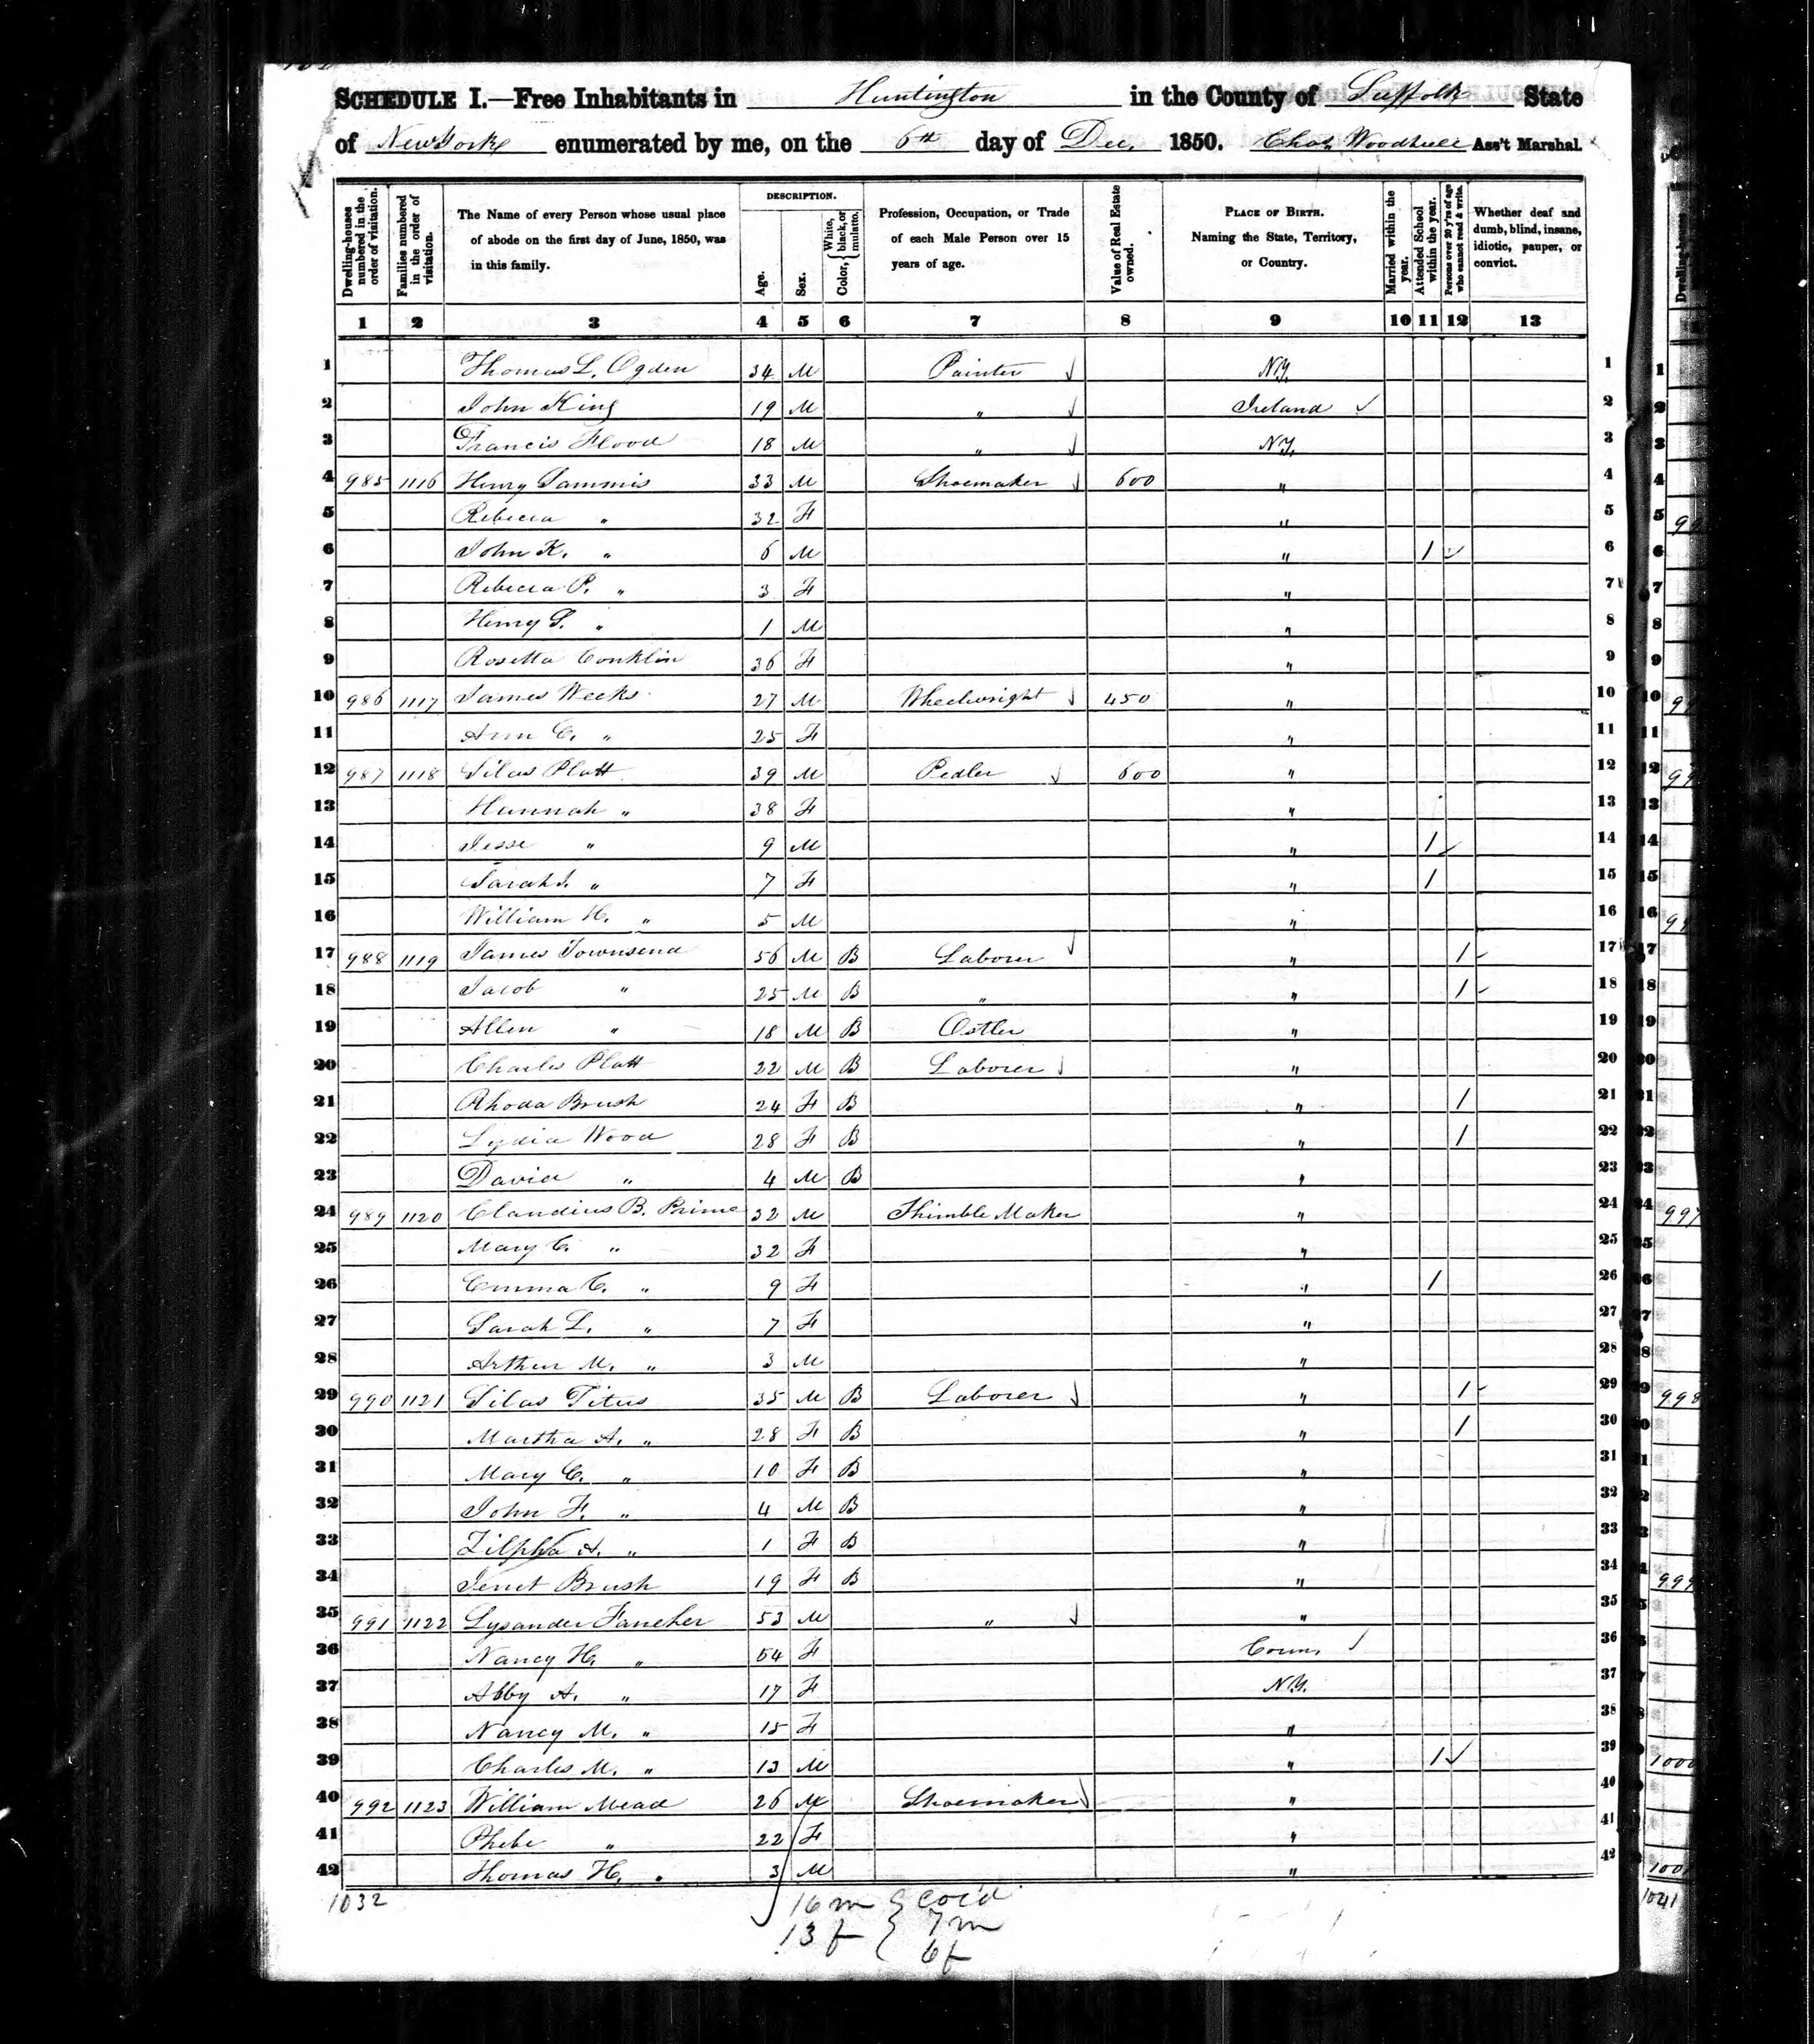 SCHEDULE I.—Free Inhabitants in Huntington in the County of Suffolk State
of New York enumerated by me, on the 6th day of Dec. 1850. Chas. Woodhull Ass't Marshal.
Dwelling-houses numbered in the order of visitation. Families numbered in the order of visitation. The Name of every Person whose usual place of abode on the first day of June, 1850, was in this family. DESCRIPTION. Age. Sex. Color, {White, black, or mulatto. Profession, Occupation, or Trade of each Male Person over 15 years of age. Value of Real Estate owned. PLACE OF BIRTH. Naming the State, Territory, or Country. Married within the year. Attended School within the year. Persons over 20 y'rs of age who cannot read & write. Whether deaf and dumb, blind, insane, idiotic, pauper, or convict.
1 2 3 4 5 6 7 8 9 10 11 12 13
1 Thomas L. Ogden 34 M Painter N.Y. 1
2 John King 19 M " Ireland 2
3 Francis Flood 18 M " N.Y. 3
4 985 1116 Henry Sammis 33 M Shoemaker 600 " 4
5 Rebecca " 32 F " 5
6 John K. " 6 M " 1 6
7 Rebecca P. " 3 F " 7
8 Henry S. " 1 M " 8
9 Rosetta Conklin 36 F " 9
10 986 1117 James Weeks 27 M Wheelwright 450 " 10
11 Ann C. " 25 F " 11
12 987 1118 Silas Platt 39 M Pedler 600 " 12
13 Hannah " 38 F " 13
14 Jesse " 9 M " 1 14
15 Sarah J. " 7 F " 1 15
16 William H. " 5 M " 16
17 988 1119 James Townsend 56 M B Laborer " 1 17
18 Jacob " 25 M B " " 1 18
19 Allen " 18 M B Ostler " 19
20 Charles Platt 22 M B Laborer " 20
21 Rhoda Brush 24 F B " 1 21
22 Lydia Wood 28 F B " 1 22
23 David " 4 M B " 23
24 989 1120 Claudius B. Prime 32 M Thimble Maker " 24
25 Mary C. " 32 F " 25
26 Emma C. " 9 F " 1 26
27 Sarah L. " 7 F " 27
28 Arthur M. " 3 M " 28
29 990 1121 Silas Titus 35 M B Laborer " 1 29
30 Martha A. " 28 F B " 1 30
31 Mary C. " 10 F B " 31
32 John F. " 4 M B " 32
33 Zilpha A. " 1 F B " 33
34 Jenet Brush 19 F B " 34
35 991 1122 Lysander Fancher 53 M " " 35
36 Nancy H. " 54 F Conn. 36
37 Abby A. " 17 F N.Y. 37
38 Nancy M. " 15 F " 38
39 Charles M. " 13 M " 1 39
40 992 1123 William Mead 26 M Shoemaker " 40
41 Phebe " 22 F " 41
42 Thomas H. " 3 M " 42
1032
16 m } col'd
13 f } 7 m
6 f
997
998
999
1000
1041